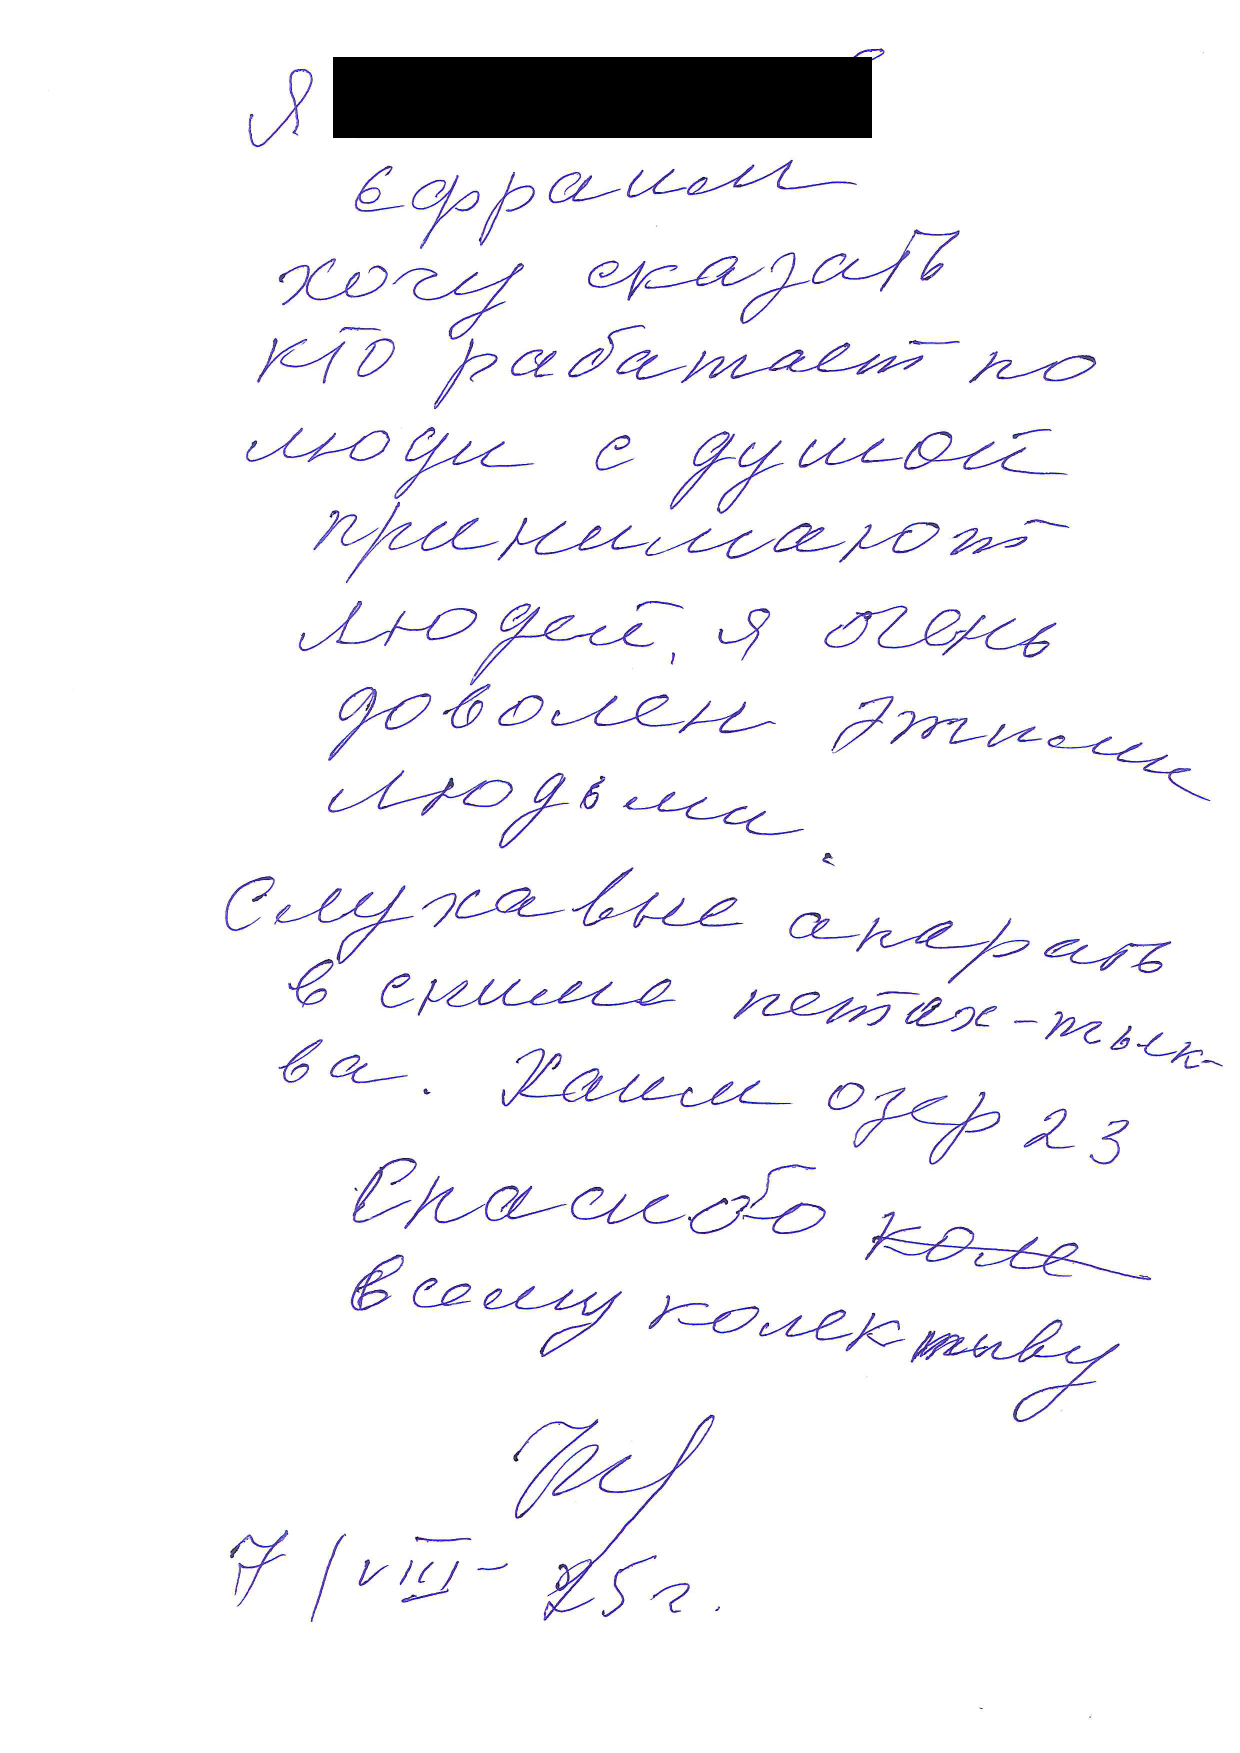 Я
Ефраим
хочу сказать
кто рабатает по
люди с душой
принимают
людей, я очень
доволен этими
людьми.
Слухавые апарать
в снима петах-тык-
ва. Хаим озер 23
Спасибо коле
всему колектыву
7/VIII-25г.